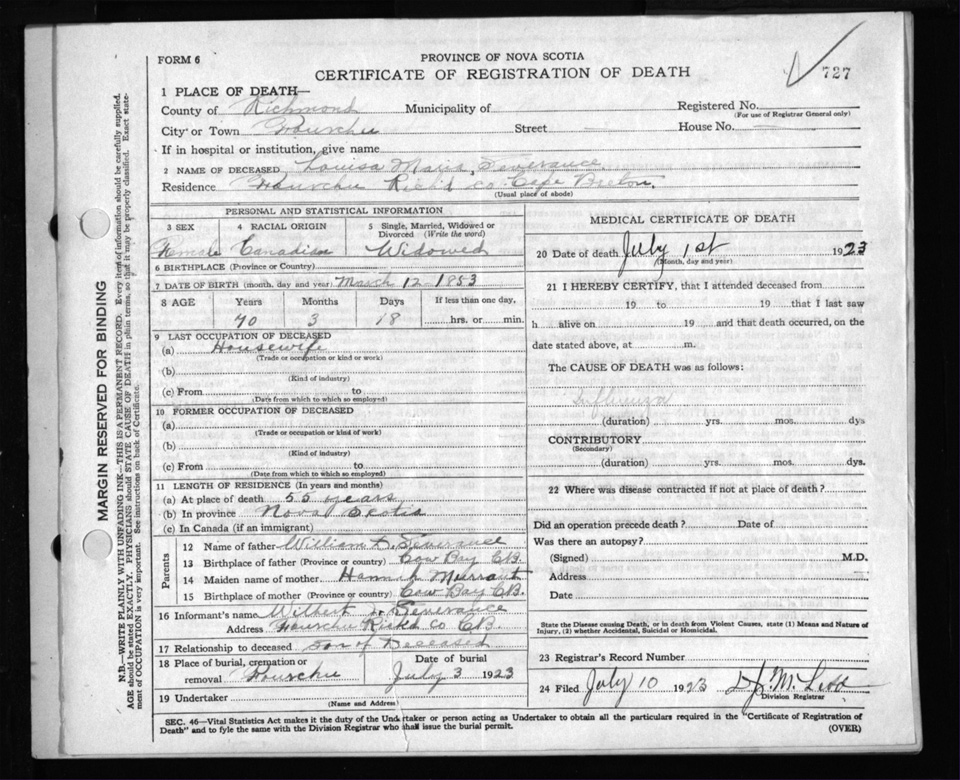 FORM 6
PROVINCE OF NOVA SCOTIA
CERTIFICATE OF REGISTRATION OF DEATH
727
1 PLACE OF DEATH—
County of Richmond Municipality of Registered No.
(For use of Registrar General only)
City or Town Fourchu Street — House No. —
If in hospital or institution, give name
2 NAME OF DECEASED Louisa Maria Severance
Residence Fourchu Rich'd Co Cape Breton.
(Usual place of abode)
PERSONAL AND STATISTICAL INFORMATION
3 SEX 4 RACIAL ORIGIN 5 Single, Married, Widowed or Divorced (Write the word)
Female Canadian Widowed
6 BIRTHPLACE (Province or Country)
7 DATE OF BIRTH (month, day and year) March 12 1853
8 AGE Years Months Days If less than one day,
70 3 18 hrs. or min.
9 LAST OCCUPATION OF DECEASED
(a) Housewife
(Trade or occupation or kind of work)
(b)
(Kind of industry)
(c) From to
(Date from which to which so employed)
10 FORMER OCCUPATION OF DECEASED
(a)
(Trade or occupation or kind of work)
(b)
(Kind of industry)
(c) From to
(Date from which to which so employed)
11 LENGTH OF RESIDENCE (In years and months)
(a) At place of death 55 years
(b) In province Nova Scotia
(c) In Canada (if an immigrant)
Parents
12 Name of father William Severance
13 Birthplace of father (Province or country) Cow Bay CB.
14 Maiden name of mother Hannah Murrant
15 Birthplace of mother (Province or country) Cow Bay CB.
16 Informant's name Wilbert Severance
Address Fourchu Rich'd Co CB.
17 Relationship to deceased Son of Deceased
18 Place of burial, cremation or removal Fourchu Date of burial July 3 1923
19 Undertaker
(Name and Address)
MEDICAL CERTIFICATE OF DEATH
20 Date of death July 1st 1923
(Month, day and year)
21 I HEREBY CERTIFY, that I attended deceased from
19 to 19 that I last saw
h alive on 19 and that death occurred, on the
date stated above, at m.
The CAUSE OF DEATH was as follows:
Influenza
(duration) yrs. mos. dys
CONTRIBUTORY
(Secondary)
(duration) yrs. mos. dys.
22 Where was disease contracted if not at place of death?
Did an operation precede death? Date of
Was there an autopsy?
(Signed) M.D.
Address
Date
State the Disease causing Death, or in death from Violent Causes, state (1) Means and Nature of
Injury, (2) whether Accidental, Suicidal or Homicidal.
23 Registrar's Record Number
24 Filed July 10 1923
Division Registrar
SEC. 46—Vital Statistics Act makes it the duty of the Undertaker or person acting as Undertaker to obtain all the particulars required in the "Certificate of Registration of
Death" and to fyle the same with the Division Registrar who shall issue the burial permit.
(OVER)
MARGIN RESERVED FOR BINDING
N.B.—WRITE PLAINLY WITH UNFADING INK—THIS IS A PERMANENT RECORD. Every item of information should be carefully supplied.
AGE should be stated EXACTLY. PHYSICIANS should STATE CAUSE OF DEATH in plain terms, so that it may be properly classified. Exact state-
ment of OCCUPATION is very important. See instructions on back of Certificate.